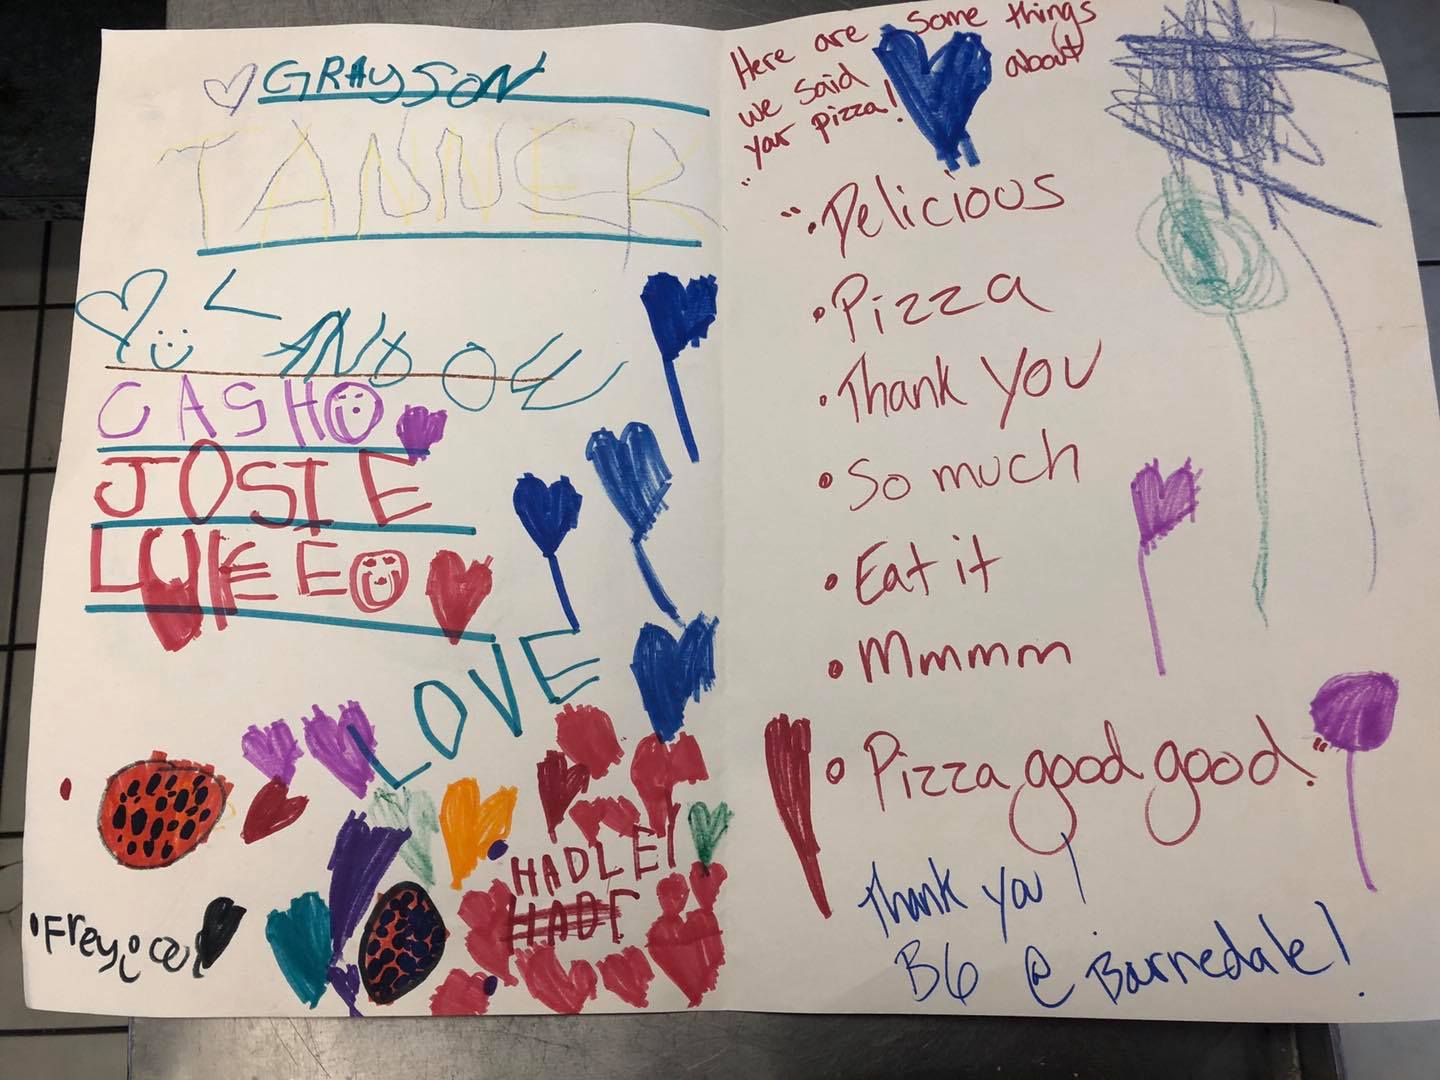 GRAYSON
TANNER
LANDON
CASH
JOSIE
LUKE E
LOVE
HADLEY
Freya
Here are some things
we said about
your pizza!
"• Delicious
• Pizza
• Thank you
• So much
• Eat it
• Mmmmm
• Pizza good good."
Thank you!
B6 @ Barnedale!